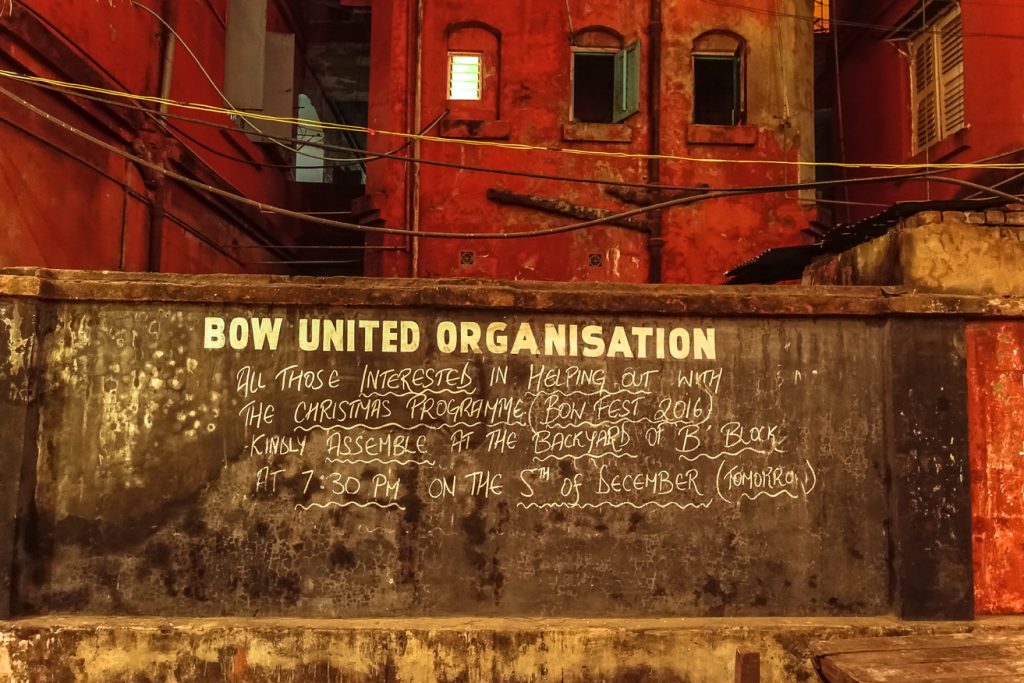 BOW UNITED ORGANISATION
ALL THOSE INTERESTED IN HELPING OUT WITH
THE CHRISTMAS PROGRAMME (BOW FEST 2016)
KINDLY ASSEMBLE AT THE BACKYARD OF 'B' BLOCK
AT 7:30 PM ON THE 5TH OF DECEMBER (TOMORROW)